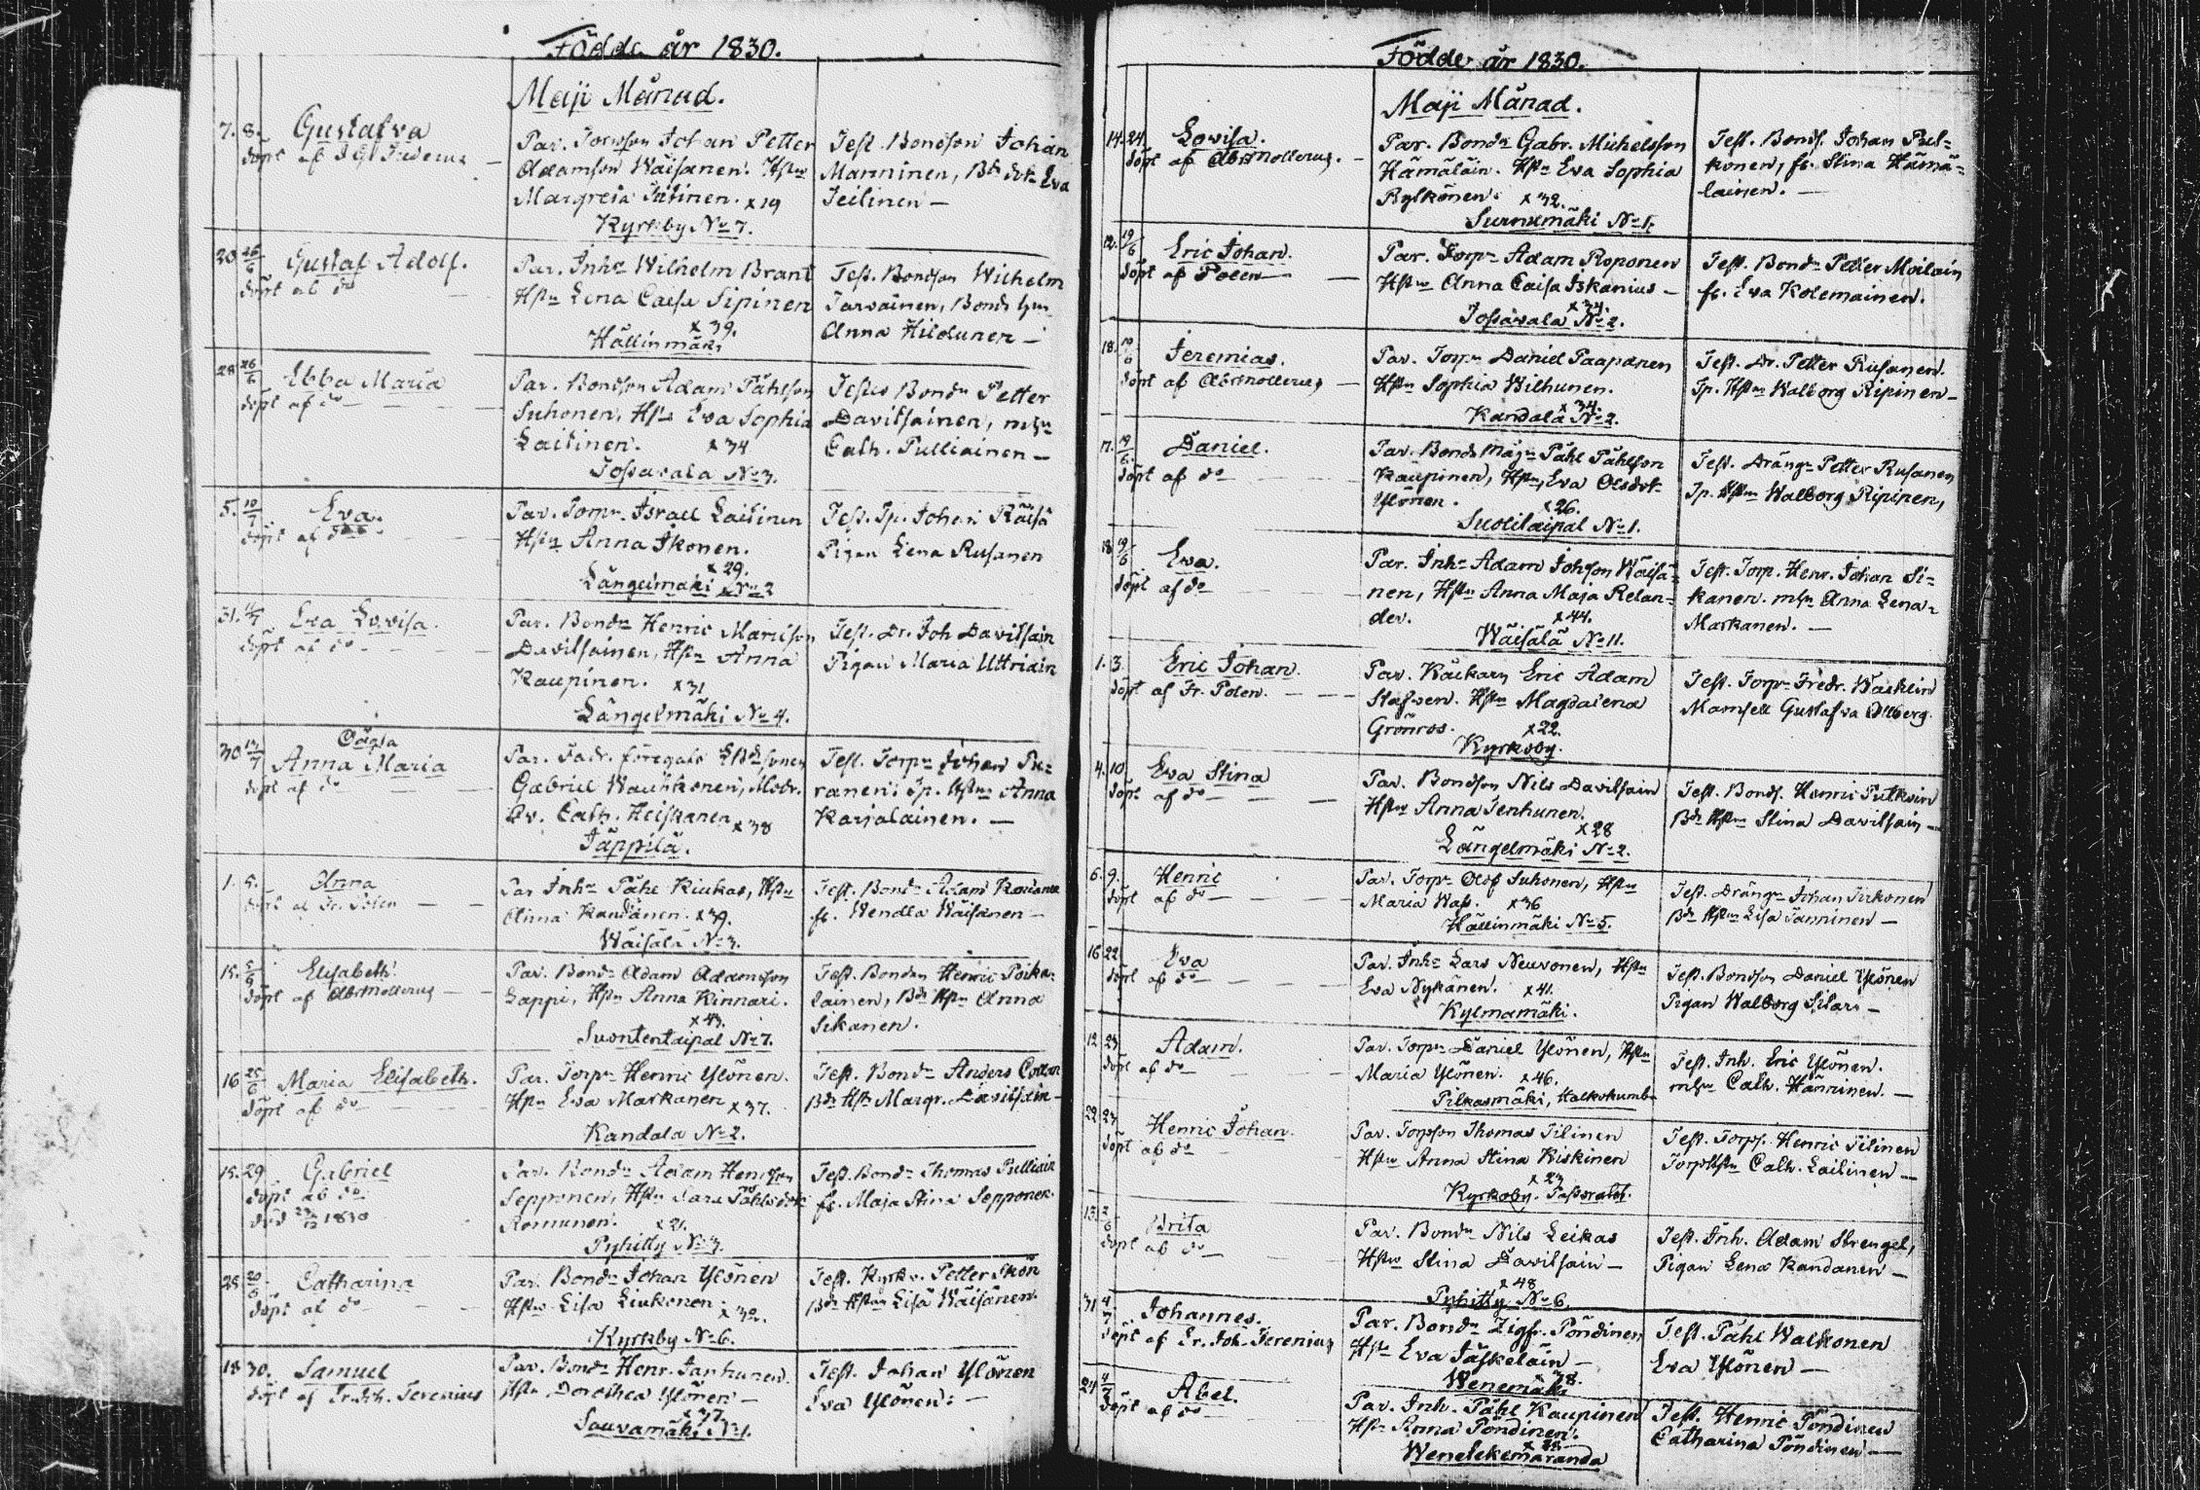 Födde år 1830.
Maji Månad.
7. 8. Gustafva
döpt af
Par. Johan Petter
Adamson Wäisänen. Hstru
Margreta ×19
Kyrkby No 7.
Test. Bondson Johan
Manninen, Eva
20 26/6 Gustaf Adolf.
döpt af do
Par. Inhs Wilhelm Brant
Hstru Lena Caisa Sipinen
×39.
Hällinmäki
Test. Bondson Wilhelm
Tarvainen,
Anna
28 26/6 Ebba Maria
döpt af do
Par. Bondson Adam Påhlson
Suhonen, Hstru Eva Sophia
Laitinen. ×34
Jossavala No 3.
Petter
Davitsainen,
Cath. Pulliainen
5. 10/7 Eva.
döpt af do
Par. Torpr. Israel Laitinen
Hstru Anna Ikonen.
×29.
Längelmäki No 2
Test. Tp. Johan Räisä
Pigan Lena Rusanen
31. Eva Lovisa.
döpt af do
Par. Bondn Henric
Davitsainen, Hstru Anna
Kaupinen. ×31
Längelmäki No 4.
Test. Dr. Joh Davitsain
Pigan Maria Uttriain
30 Anna Maria
döpt af do
Par. Fadr. föregafs
Gabriel Wauhkonen, Modr.
Cath. Heiskanen ×38
Jäppilä.
Test. Torpn Johan Pu-
ranen; Tp. Hstru Anna
Karjalainen.
1. 5. Anna
döpt af Fr. Polen
Par Inhs Påhl Kiukas, Hstru
Anna Kandanen. ×39.
Wäisälä No 3.
Test. Bondn Adam
fr. Wendla Wäisänen
15. 5/6 Elisabeth.
döpt af
Par. Bondn Adam Adamsson
Lappi, Hstru Anna Kinnari.
×43.
Suontentaipal No 7.
Test. Henric Poika-
lainen, Bdn Hstru Anna
Sikanen.
16 25/6 Maria Elisabeth.
döpt af do
Par. Torpn Henric Ylönen.
Hstru Eva Markanen ×37.
Kandala No 2.
Test. Bondn Anders
Bdn Hstru Margr. Davitsain
15. 29. Gabriel
döpt af do
död 1830
Par. Bondn Adam Henrson
Sepponen, Hstru Sara Påhlsdotr
Romunen. ×21.
Pyhitty No 3.
Test. Bondn Thomas Pulliain
fr. Maja Stina Sepponen
25 20/6 Catharina
döpt af do
Par. Bondn Johan Ylönen
Hstru Lisa Liukonen ×32.
Kyrkby No 6.
Test. Kyrkv. Petter Ikon
Bdn Hstru Lisa Wäisänen.
18 30. Samuel
döpt af Fr. Joh. Ferenius
Par. Bondn Henr. Janhunen.
Hstru Dorothea Ylönen
×37
Sauvamäki No 1.
Test. Johan Ylönen
Eva Ylönen:
Födde år 1830.
Maji Månad.
14. 24. Lovisa.
döpt af
Par. Bondn Gabr. Michelsson
Hämäläin. Hstru Eva Sophia
Rylkönen. ×32.
Surnumäki No 1.
Test. Bonds. Johan Pul-
konen, fr. Stina Hämä-
lainen.
12. 19/6 Eric Johan.
döpt af Polen
Par. Torpn Adam Roponen
Hstru Anna Caisa Iskanius
×34.
Jossavala No 2.
Test. Bondn Petter Moilain
fr. Eva Kolemainen.
18. 19/6 Jeremias.
döpt af
Par. Torpn Daniel Paapanen
Hstru Sophia Wilhunen.
×34.
Kandala No 2.
Test. Dr. Petter Rusanen.
Tp. Hstru Walborg Ripinen
17. 19/6 Daniel.
döpt af do
Par. Bonds Mågn Påhl Påhlson
Kaupinen, Hstru Eva Olsdotr
Ylönen. ×26.
Suolitaipal No 1.
Test. Drängn Petter Rusanen
Tp. Hstru Walborg Ripinen,
18 19/6 Eva.
döpt af do
Par. Inhs Adam Johsson Wäisä-
nen, Hstru Anna Maja Relan-
der. ×44.
Wäisälä No 11.
Test. Torp. Henr. Johan Si-
kanen. Anna Lena
Markanen.
1. 3. Eric Johan.
döpt af Fr. Polen.
Par. Eric Adam
Hstru Magdalena
Grönros. ×22.
Kyrkoby.
Test. Torpn Fredr. Wasklin
Mamsell Gustafva
4. 10. Eva Stina
döpt af do
Par. Bondson Nils Davitsain
Hstru Anna Jenhunen.
×28
Längelmäki No 2.
Test. Bonds. Henric Pulkoin
Bdn Hstru Stina Davitsain
6. 9. Henric
döpt af do
Par. Torpn Olof Suhonen, Hstru
Maria ×36
Hällinmäki No 5.
Test. Drängn Johan Jerkonen
Bdn Hstru Lisa Janninen
16 22. Eva
döpt af do
Par. Inhs Lars Neuvonen, Hstru
Eva Nykänen. ×41.
Kylmamäki.
Test. Bondson Daniel Ylönen
Pigan Walborg
12. 23. Adam.
döpt af do
Par. Torpn Daniel Ylönen, Hstru
Maria Ylönen. ×46.
Pilkasmäki, Halkokumb
Test. Inh. Eric Ylönen.
Cath. Hänninen.
22. 23 Henric Johan.
döpt af do
Par. Torpson Thomas Tilinen
Hstru Anna Stina Kiskinen
Kyrkoby.
Test. Torps. Henric Tilinen
Torp Hstru Cath. Laitinen
13. 2/6 Brita
döpt af do
Par. Bondn Nils Leikas
Hstru Stina Davitsain
×48
Pyhitty No 6.
Test. Inh. Adam Strengel,
Pigan Lena Kandanen
31 4/7 Johannes.
döpt af Fr. Joh. Ferenius
Par. Bondn Zigfr. Pöndinen
Hstru Eva Jäskeläin
×38.
Wenemäki
Test. Påhl Walkonen
Eva Ylönen
24 4/7 Abel.
döpt af do
Par. Inh. Påhl Kaupinen
Hstru Anna Pöndinen.
Test. Henric Pöndinen
Catharina Pöndinen